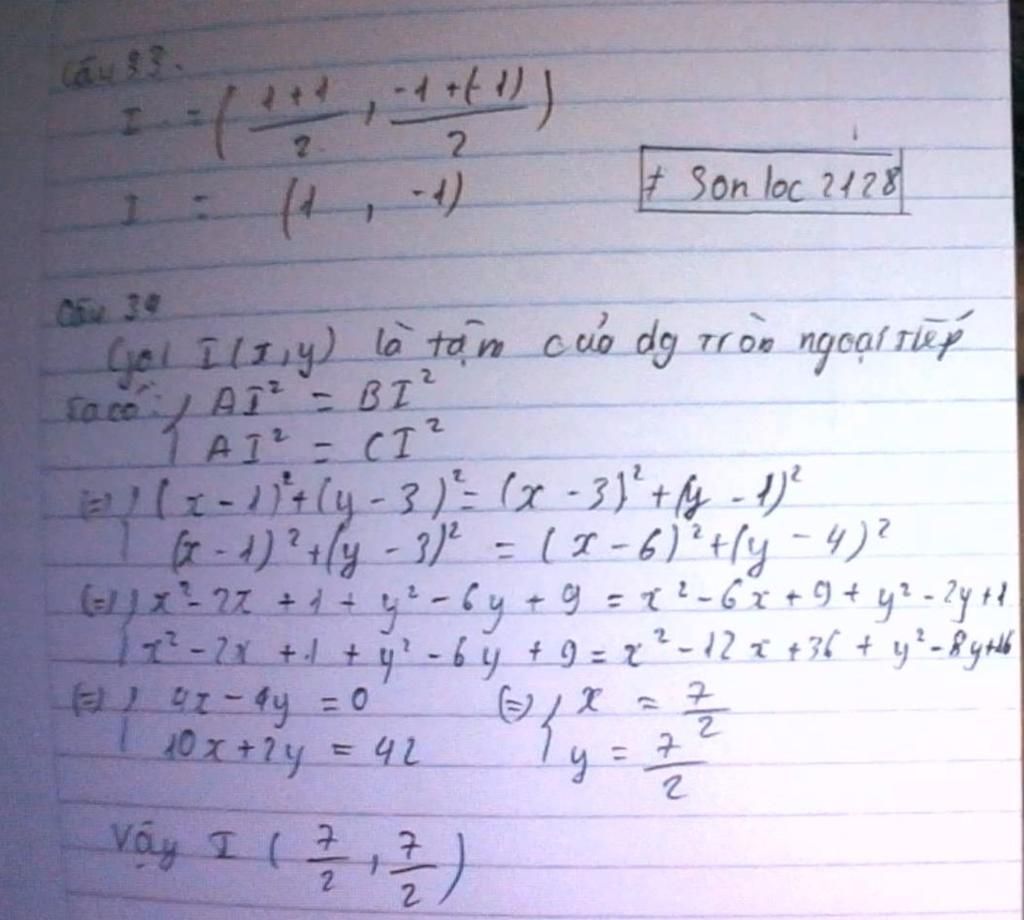 Câu 33.
I = ( 1+1/2 , -1+(-1)/2 )
I = (1 , -1)
# Son loc 2128
Câu 34
Gọi I(x,y) là tâm của dg tròn ngoại tiếp
Ta có: { AI² = BI²
AI² = CI²
(=) { (x - 1)² + (y - 3)² = (x - 3)² + (y - 1)²
(x - 1)² + (y - 3)² = (x - 6)² + (y - 4)²
(=) { x² - 2x + 1 + y² - 6y + 9 = x² - 6x + 9 + y² - 2y + 1
x² - 2x + 1 + y² - 6y + 9 = x² - 12x + 36 + y² - 8y + 16
(=) { 4x - 4y = 0 (=) { x = 7/2
10x + 2y = 42 y = 7/2
Vậy I ( 7/2 , 7/2 )